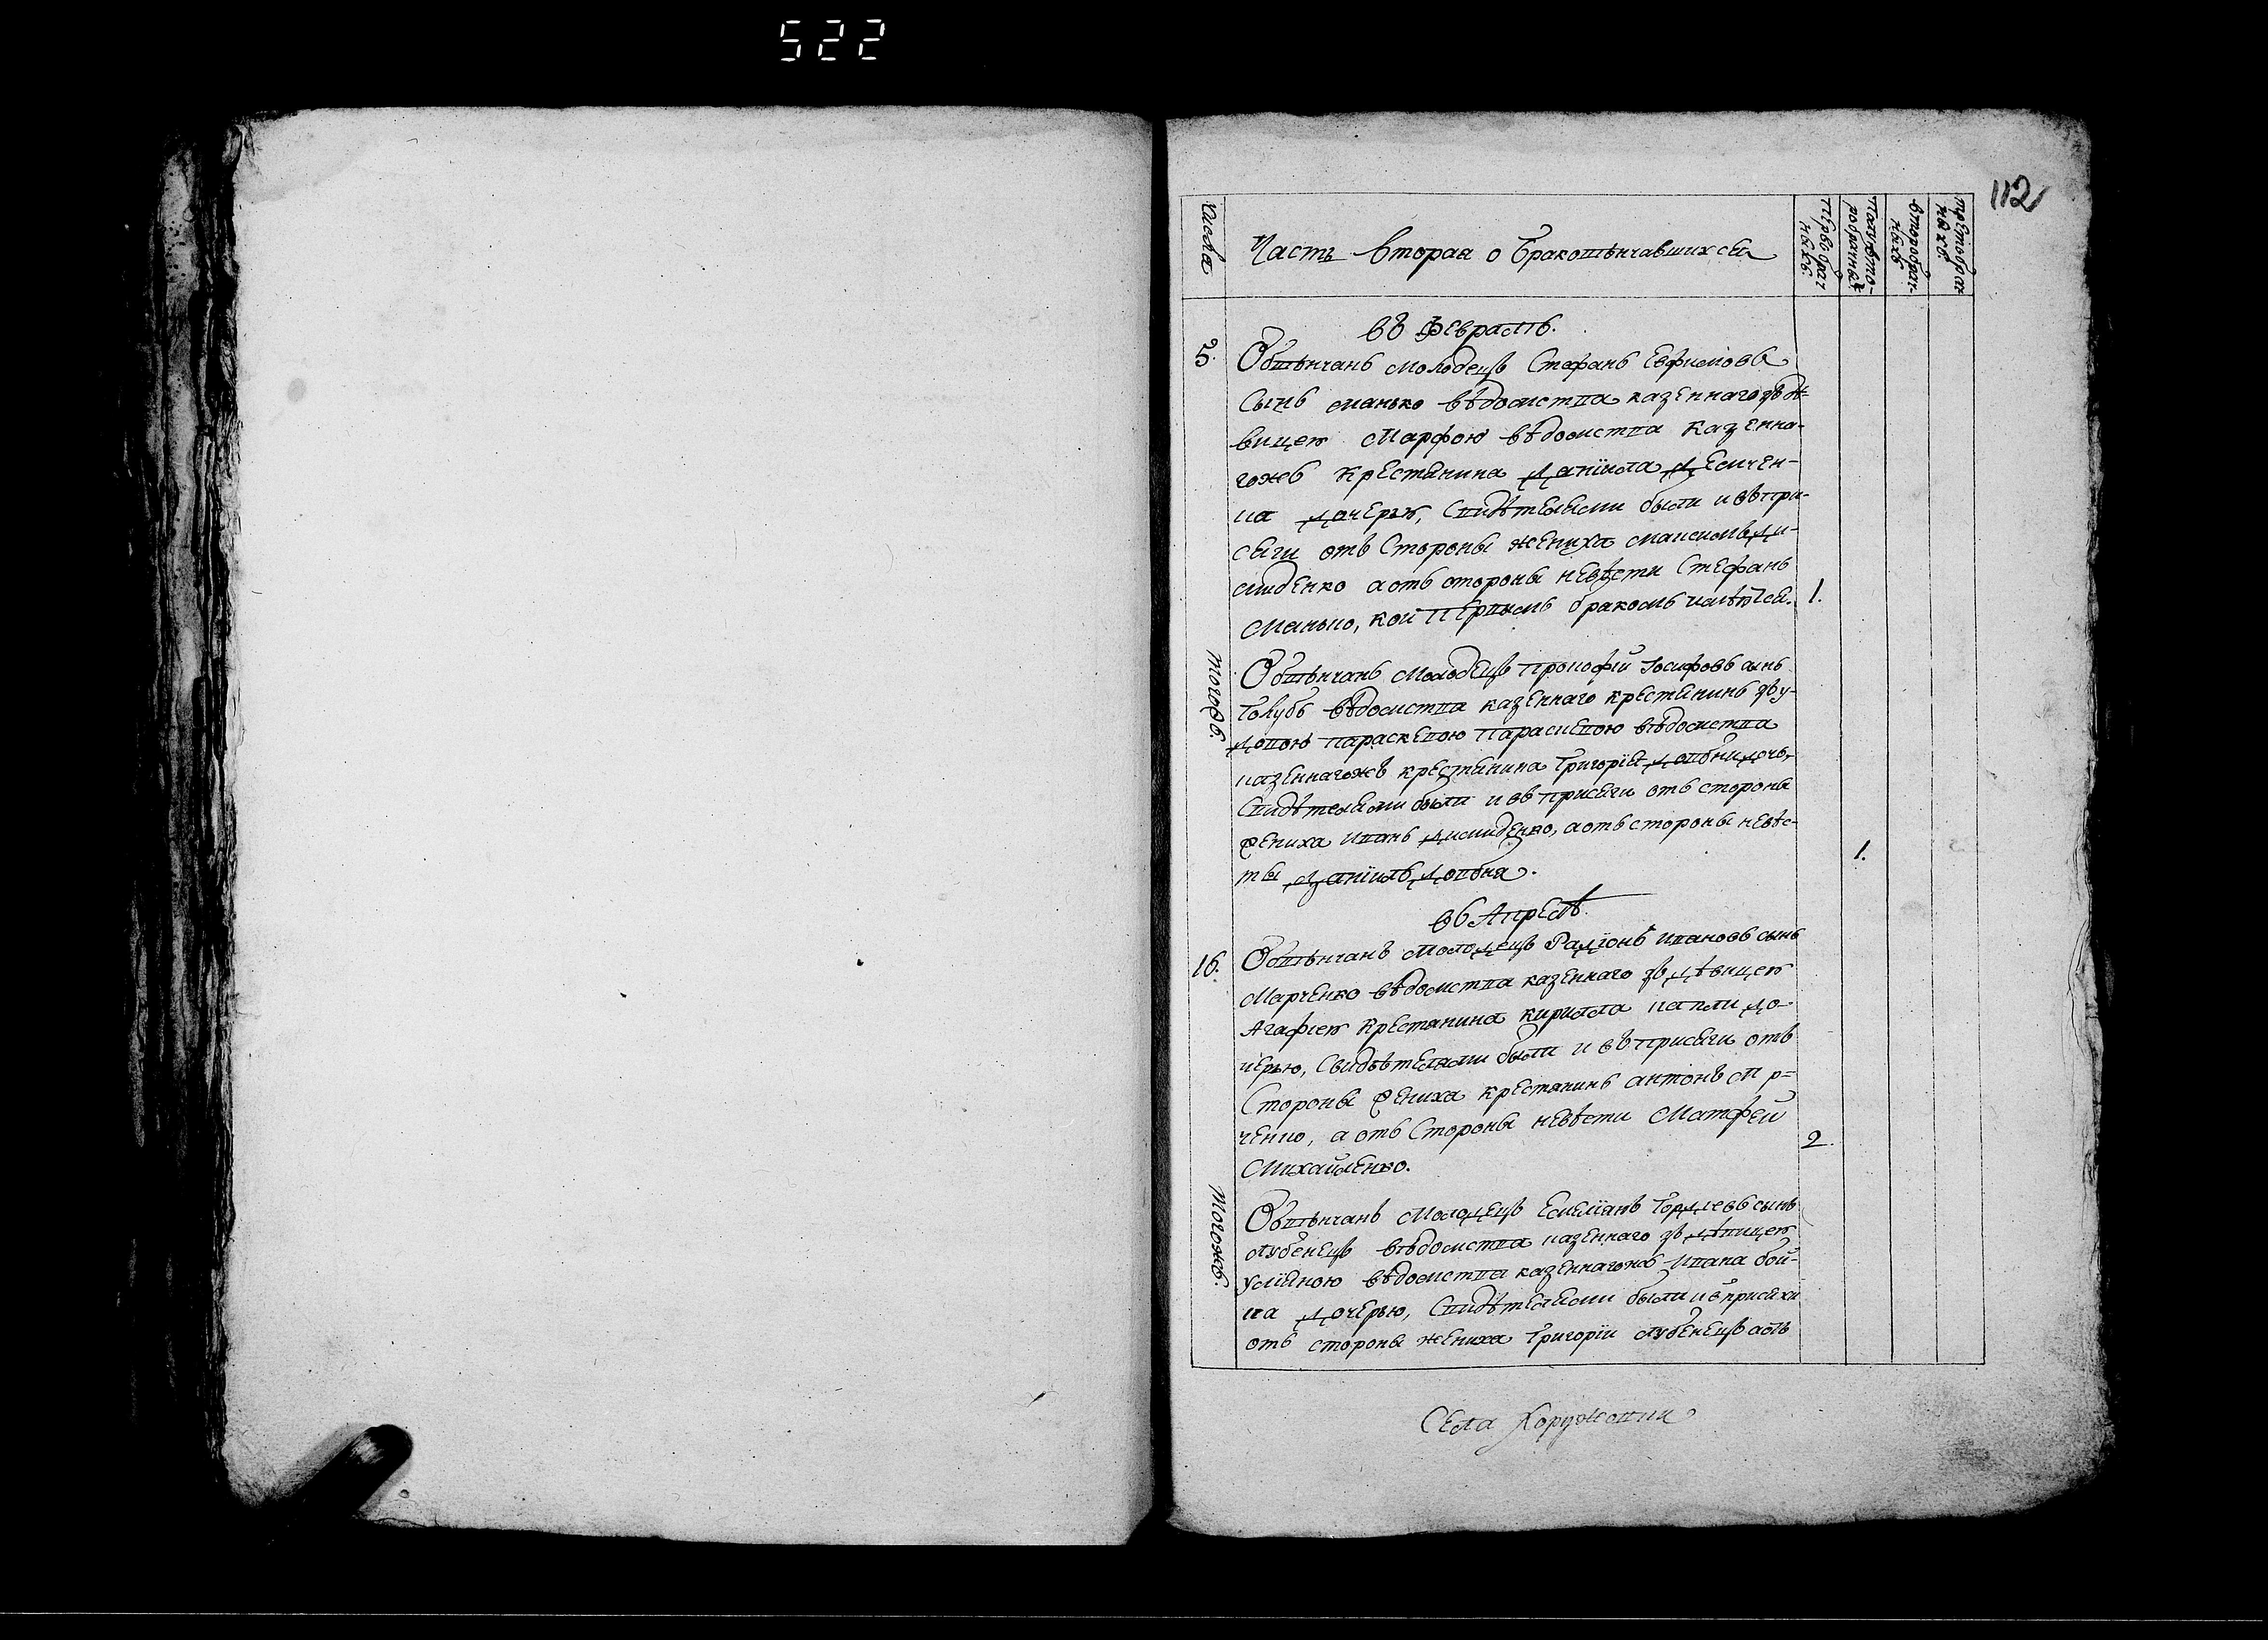 522
112
Числа
Часть вторая о браковѣнчавшихся
Перво брач
ныхъ.
Полувто-
робрачныхъ
второбрач-
ныхъ
третобрач
ныхъ.
въ Февралѣ.
5. Обвѣнчанъ молодецъ Стефанъ Евфимовъ
Сынъ манько вѣдомства казеннаго зъ дѣ-
вицею Марфою вѣдомства казенна-
гожъ крестянина Даніила Демчен-
ка дочерью, Свидѣтелями были и въ при-
сяги отъ Стороны жениха Максимъ Ди-
миденко а отъ стороны невѣсти Стефанъ
Манько, кои первымъ бракомъ 1.
тогожъ. Обвѣнчанъ Молодецъ Прокофій Іосифовъ сынъ
Голубъ вѣдомства казеннаго крестянинъ зъ у-
довою Параскевою Параскевою вѣдомства
казеннагожъ крестянина Григорія Довбни дочъ,
Свидѣтелями были и въ присяги отъ стороны
жениха Иванъ Димиденко, а отъ стороны невѣс-
ты Даніилъ Довбня. 1.
въ Апрелѣ.
16. Обвѣнчанъ Молодецъ Радіонъ Ивановъ сынъ
Марченко вѣдомства казеннаго зъ дѣвицею
Агафіею крестянина Кирилла Цапли до-
черью, Свидѣтелями были и въ присяги отъ
Стороны жениха крестянинъ антонъ М р=
ченко, а отъ Стороны невѣсти Матфей
Михайленко. 2.
тогожъ. Обвѣнчанъ Молодецъ Емеліанъ Гордеевъ сынъ
лубенецъ вѣдомства казеннаго зъ дѣвицею
Уліяною вѣдомства казеннагожъ Ивана бой-
ка дочерью, Свидѣтелями были и в присяхи
отъ стороны жениха Григорій лубенецъ а отъ
Села Коружовки